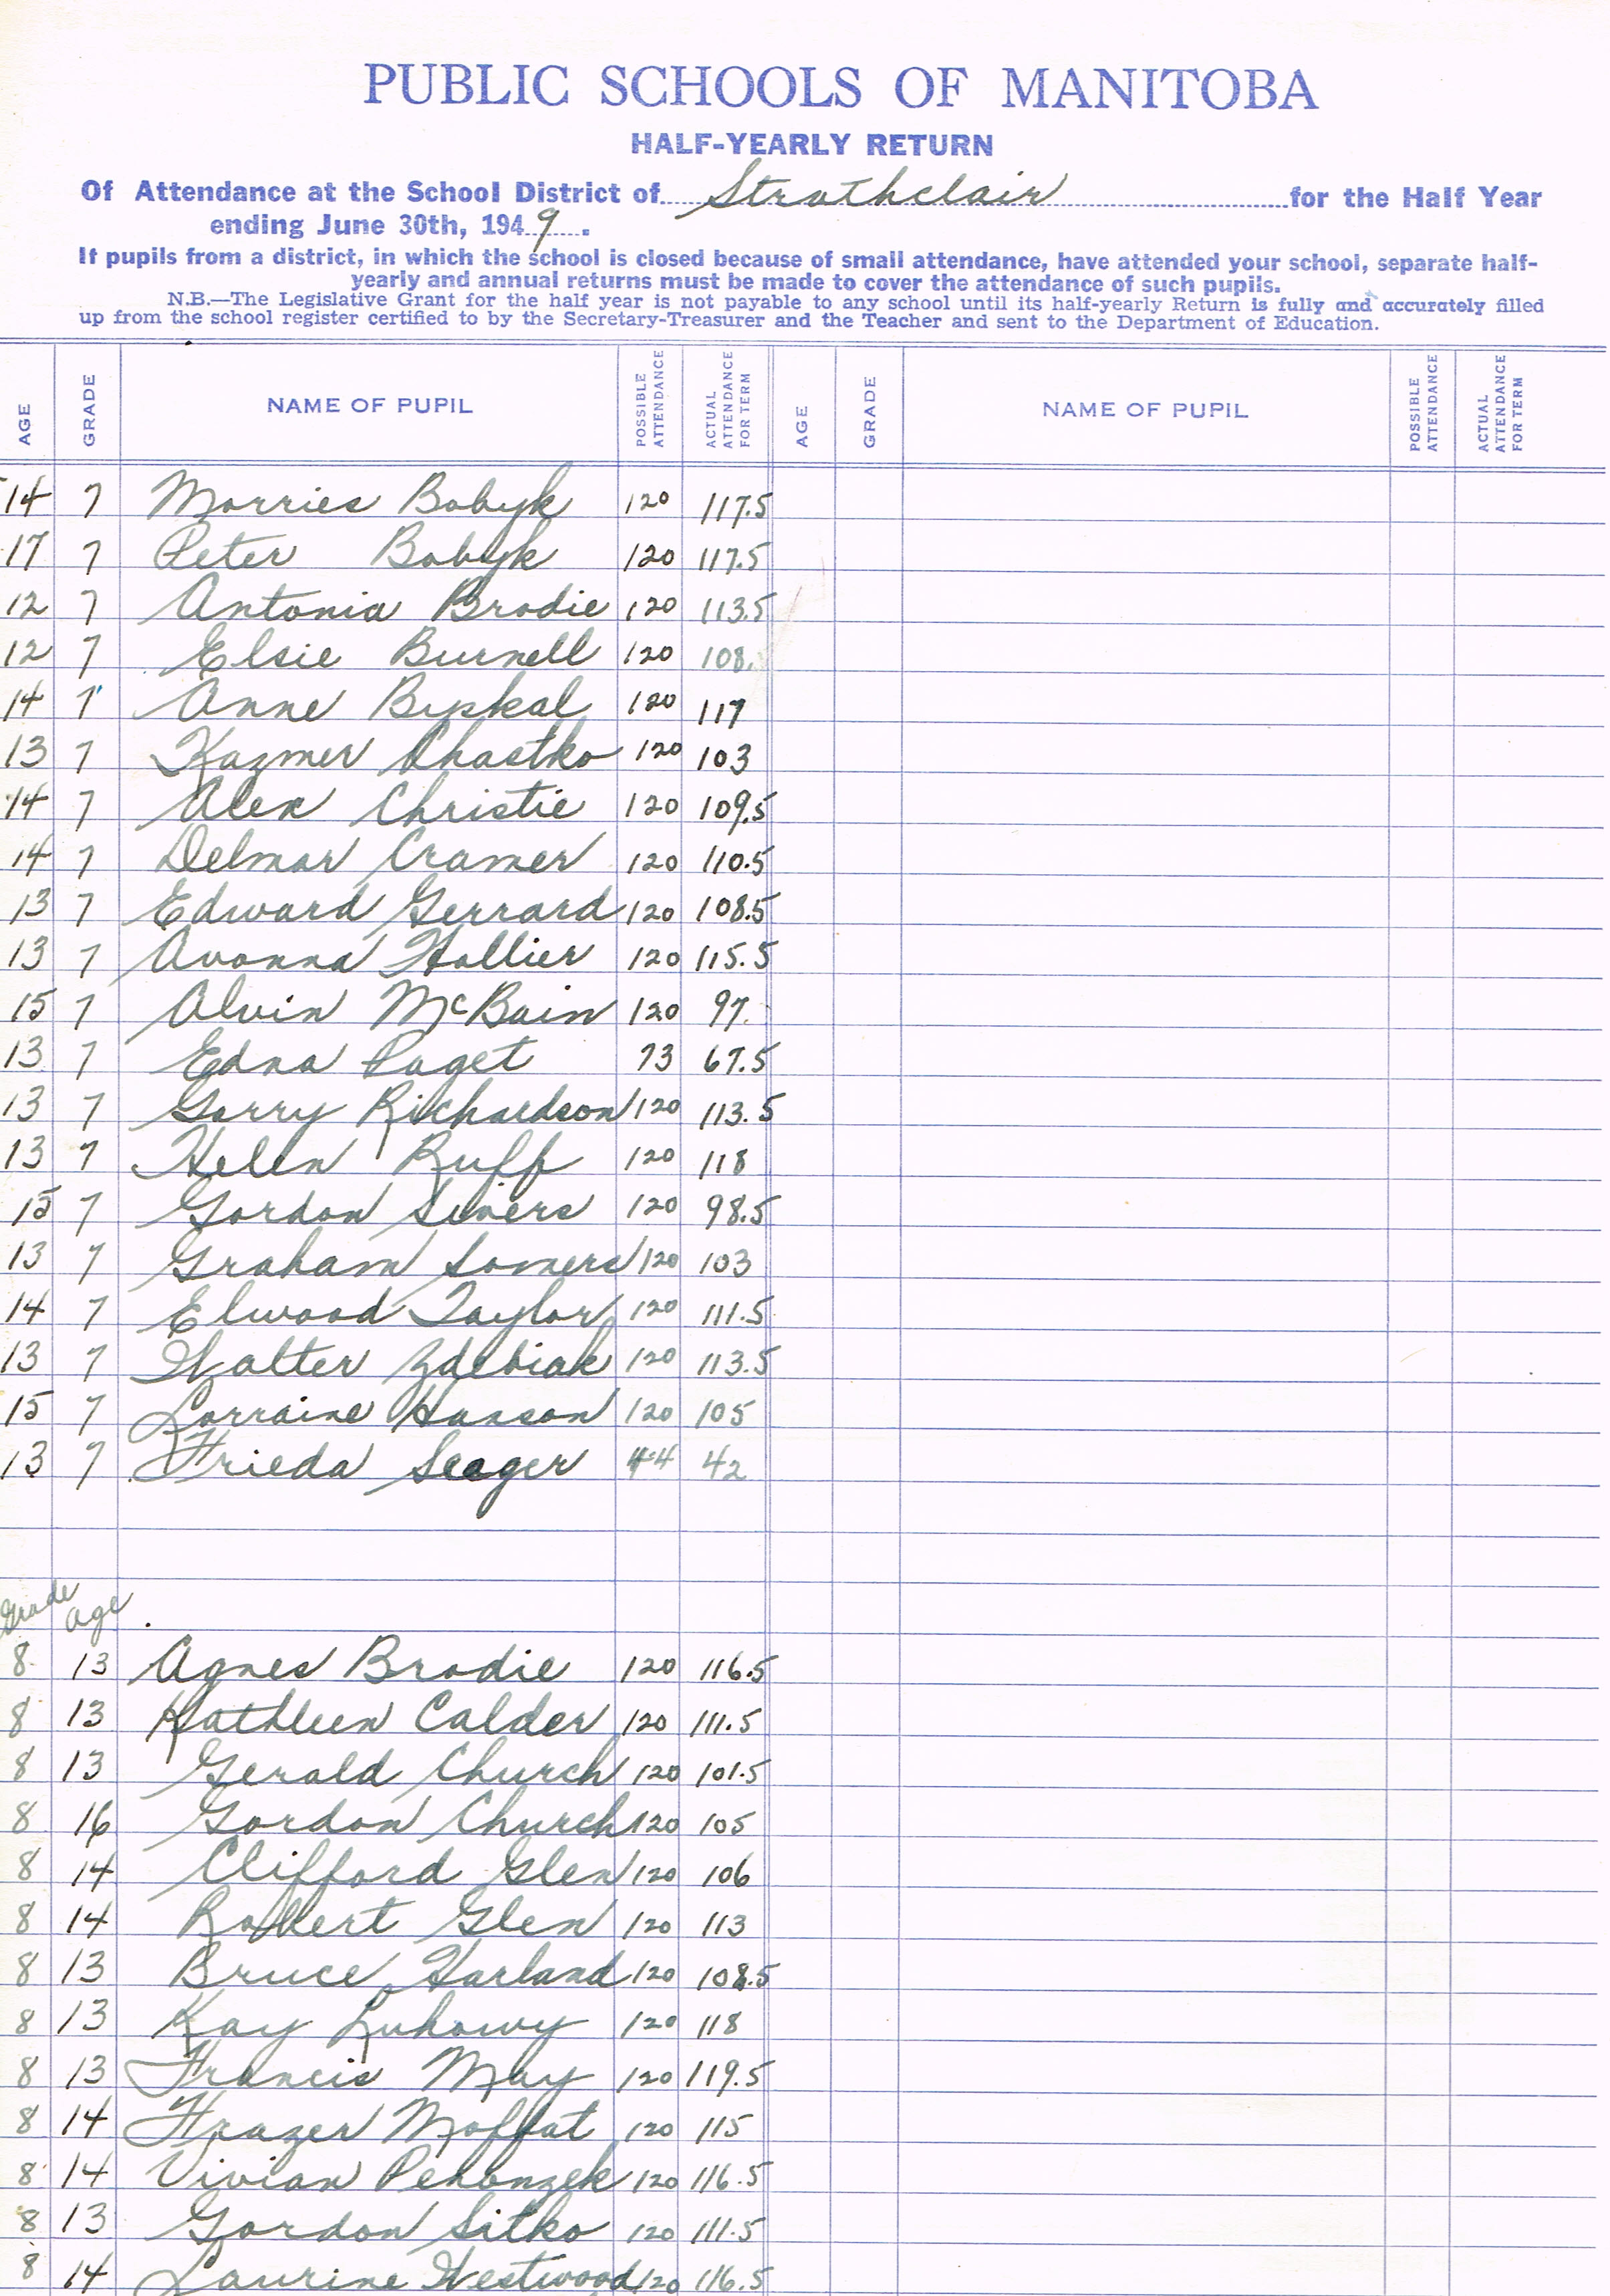 PUBLIC SCHOOLS OF MANITOBA
HALF-YEARLY RETURN
Of Attendance at the School District of Strathclair for the Half Year
ending June 30th, 1949.
If pupils from a district, in which the school is closed because of small attendance, have attended your school, separate half-
yearly and annual returns must be made to cover the attendance of such pupils.
N.B.—The Legislative Grant for the half year is not payable to any school until its half-yearly Return is fully and accurately filled
up from the school register certified to by the Secretary-Treasurer and the Teacher and sent to the Department of Education.
AGE GRADE NAME OF PUPIL POSSIBLE ATTENDANCE ACTUAL ATTENDANCE FOR TERM AGE GRADE NAME OF PUPIL POSSIBLE ATTENDANCE ACTUAL ATTENDANCE FOR TERM
14 7 Morries Bobyk 120 117.5
17 7 Peter Bobyk 120 117.5
12 7 Antonia Brodie 120 113.5
12 7 Elsie Burnell 120 108.
14 7 Anne Byskal 120 117
13 7 Kazmer Chastko 120 103
14 7 Alex Christie 120 109.5
14 7 Delmar Cramer 120 110.5
13 7 Edward Gerrard 120 108.5
13 7 Avonna Hollier 120 115.5
15 7 Alvin McBain 120 97.
13 7 Edna Paget 73 67.5
13 7 Garry Richardson 120 113.5
13 7 Helen Ruff 120 118
15 7 Gordon Sivers 120 98.5
13 7 Graham Somers 120 103
14 7 Elwood Taylor 120 111.5
13 7 Walter Zdebiak 120 113.5
15 7 Lorraine Hanson 120 105
13 7 Frieda Seager 44 42
Grade Age
8 13 Agnes Brodie 120 116.5
8 13 Kathleen Calder 120 111.5
8 13 Gerald Church 120 101.5
8 16 Gordon Church 120 105
8 14 Clifford Glen 120 106
8 14 Robert Glen 120 113
8 13 Bruce Harland 120 108.5
8 13 Kay Luhowy 120 118
8 13 Francis May 120 119.5
8 14 Frazer Moffat 120 115
8 14 Vivian 120 116.5
8 13 Gordon Sitko 120 111.5
8 14 Laurine Westwood 120 116.5